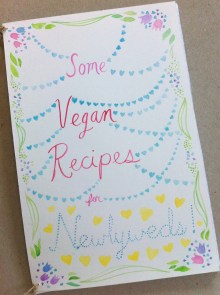 Some
Vegan
Recipes
for
Newlyweds!